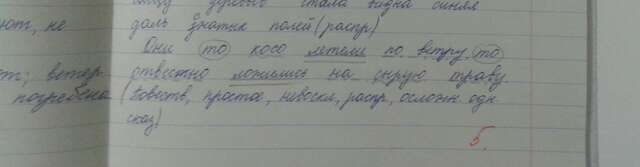 стала видна синяя
ют, не
даль знатых полей (распр)
Они то косо летели по ветру, то
ст; ветер
отвестно ложились на сырую траву.
погребена
(повеств, простое, невоскл, распр, осложн. одн
сказ)
5.